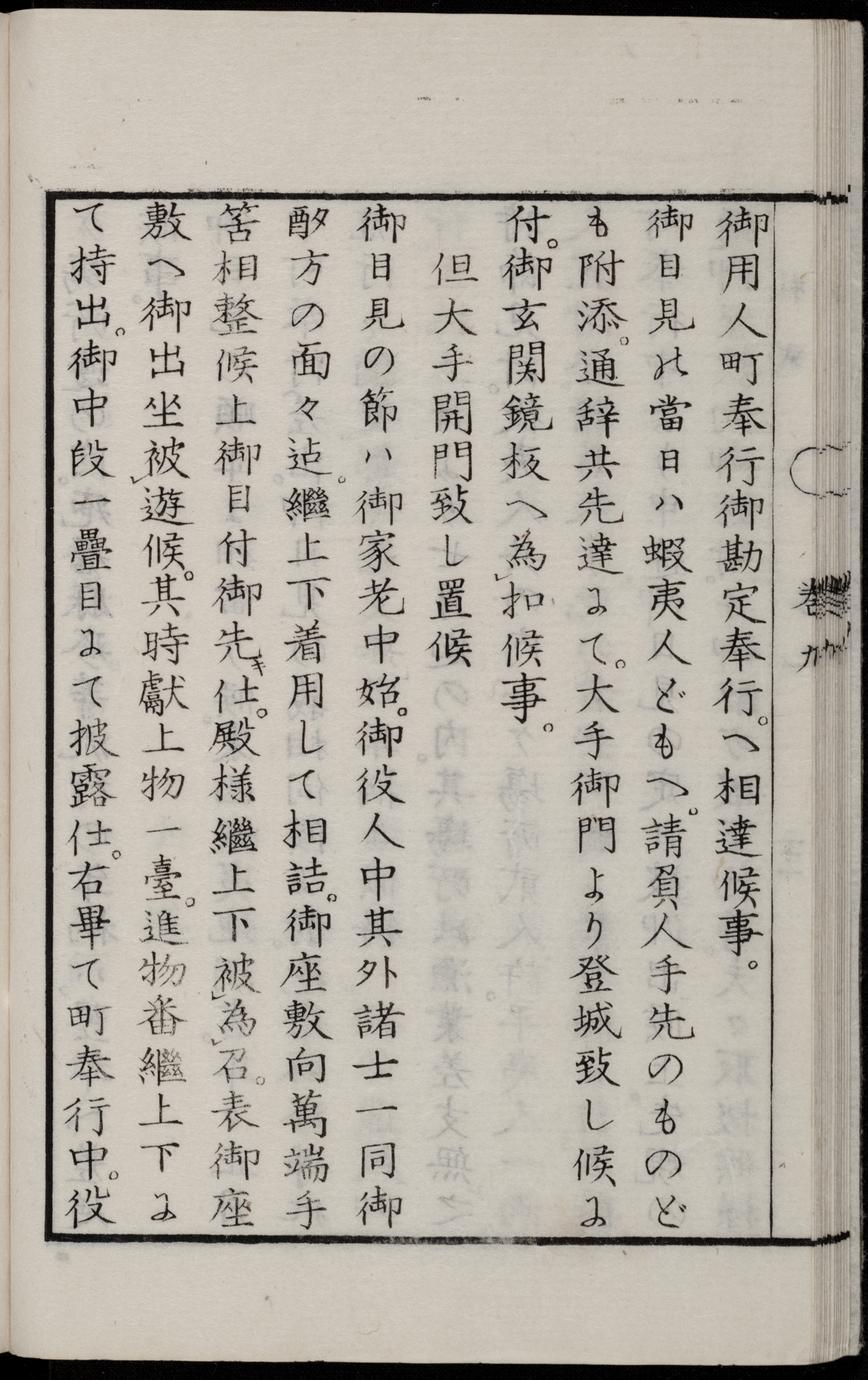 卷九
御用人町奉行御勘定奉行。へ相達候事。
御目見の當日ハ蝦夷人どもへ。請負人手先のものど
も附添。通辞共先達にて。大手御門より登城致し候に
付。御玄関鏡板へ為扣候事。
但大手開門致し置候
御目見の節ハ御家老中始。御役人中其外諸士一同御
酘方の面々迠。繼上下着用して相詰。御座敷向萬端手
筈相整候上御目付御先キ仕。殿様繼上下被為召。表御座
敷へ御出坐被遊候。其時獻上物一臺。進物番繼上下に
て持出。御中段一疊目にて披露仕。右畢て町奉行中。役